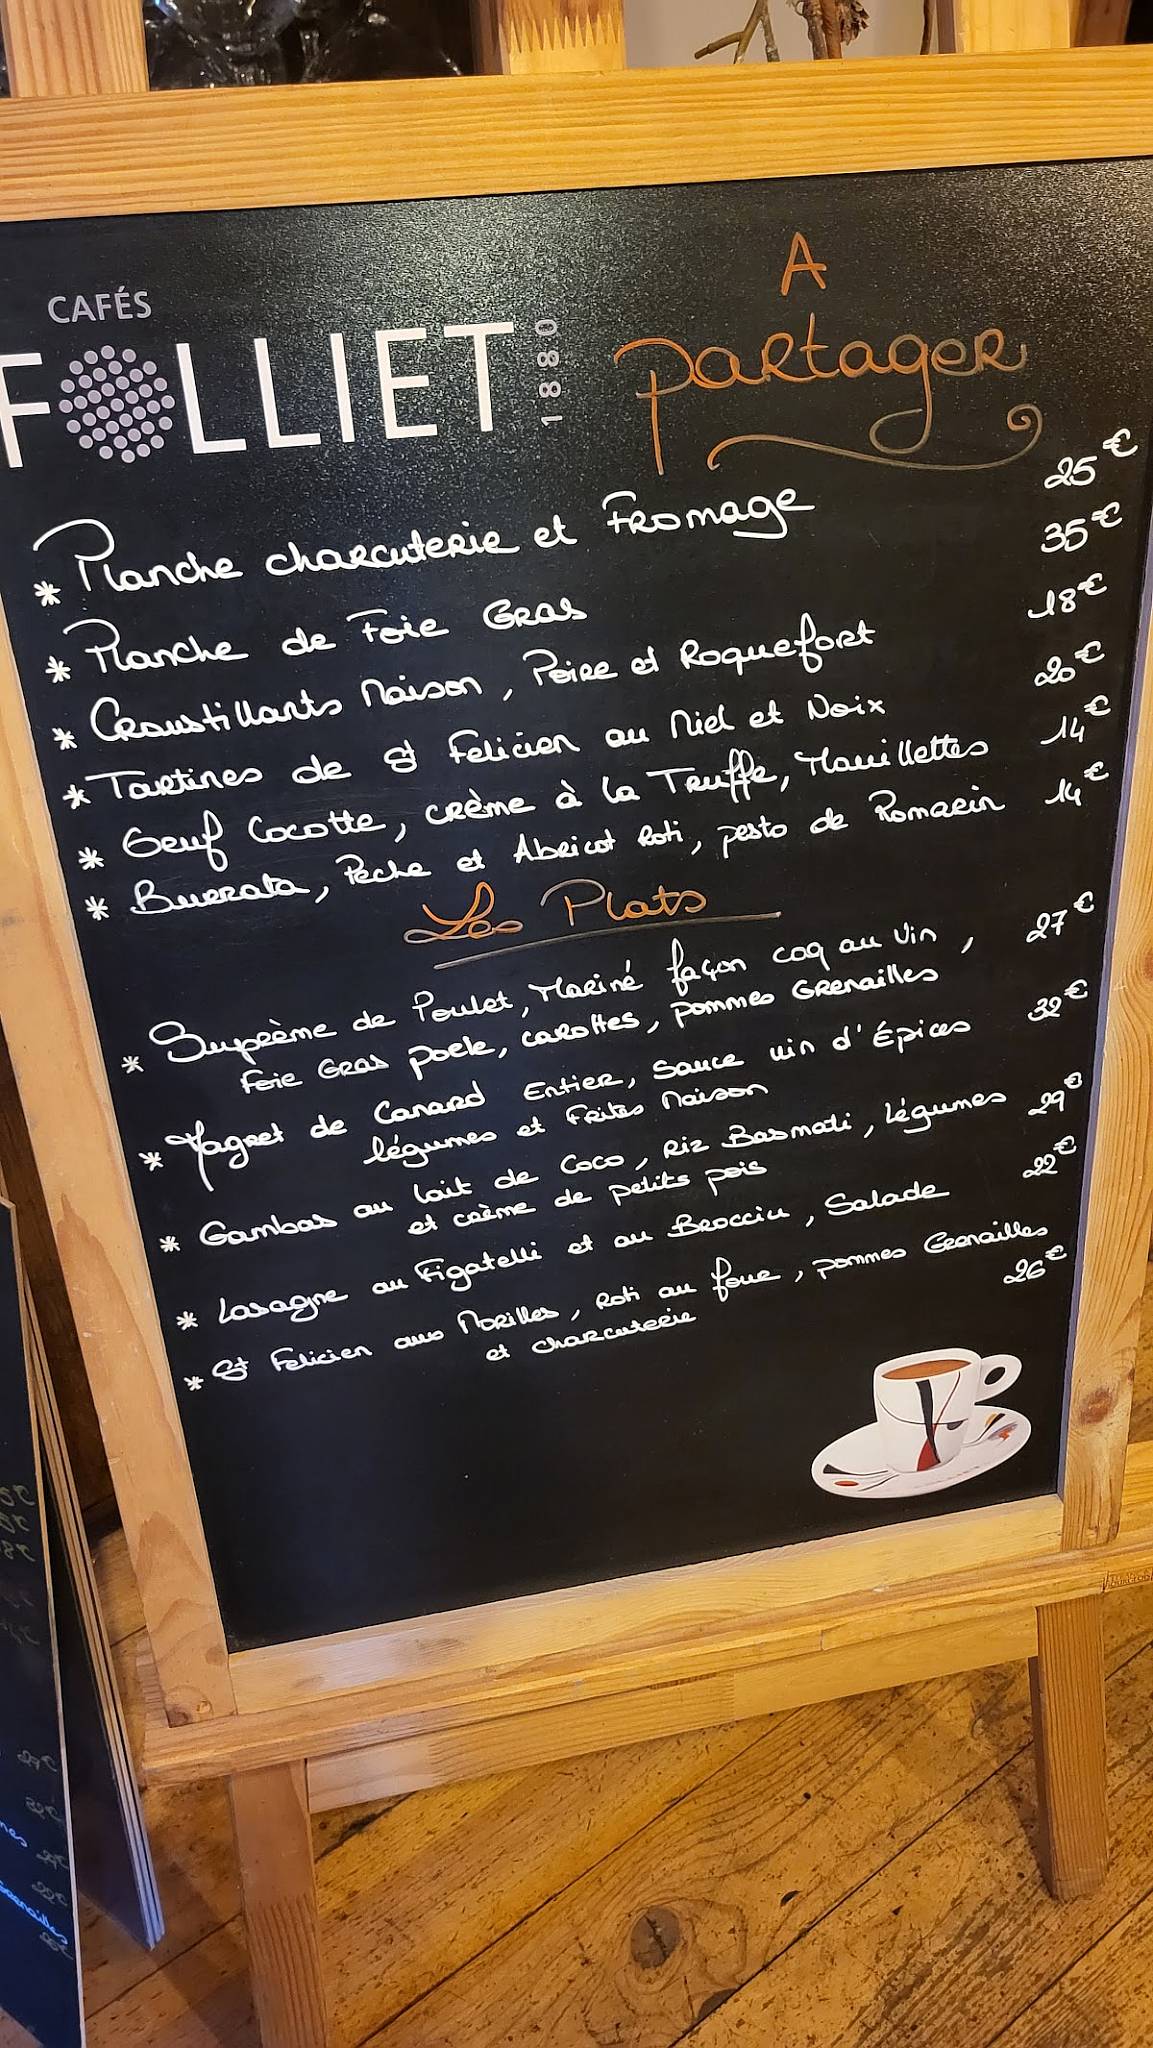 CAFÉS
FOLLIET 1880
A
Partager
* Planche charcuterie et Fromage 25€
* Planche de Foie Gras 35€
* Croustillants Maison, Poire et Roquefort 18€
* Tartines de St Felicien au Miel et Noix 20€
* Oeuf Cocotte, crème à la Truffe, Mouillettes 14€
* Burrata, Pêche et Abricot Roti, pesto de Romarin 14€
Les Plats
* Suprème de Poulet, Mariné façon coq au vin, 27€
Foie Gras poele, carottes, pommes Grenailles
* Magret de Canard Entier, Sauce vin d'Épices 32€
légumes et Frites Maison
* Gambas au lait de Coco, Riz Basmati, légumes 29€
et crème de petits pois
* Lasagne au Figatelli et au Brocciu, Salade 22€
* St Felicien aux Morilles, roti au four, pommes Grenailles
et charcuterie 26€